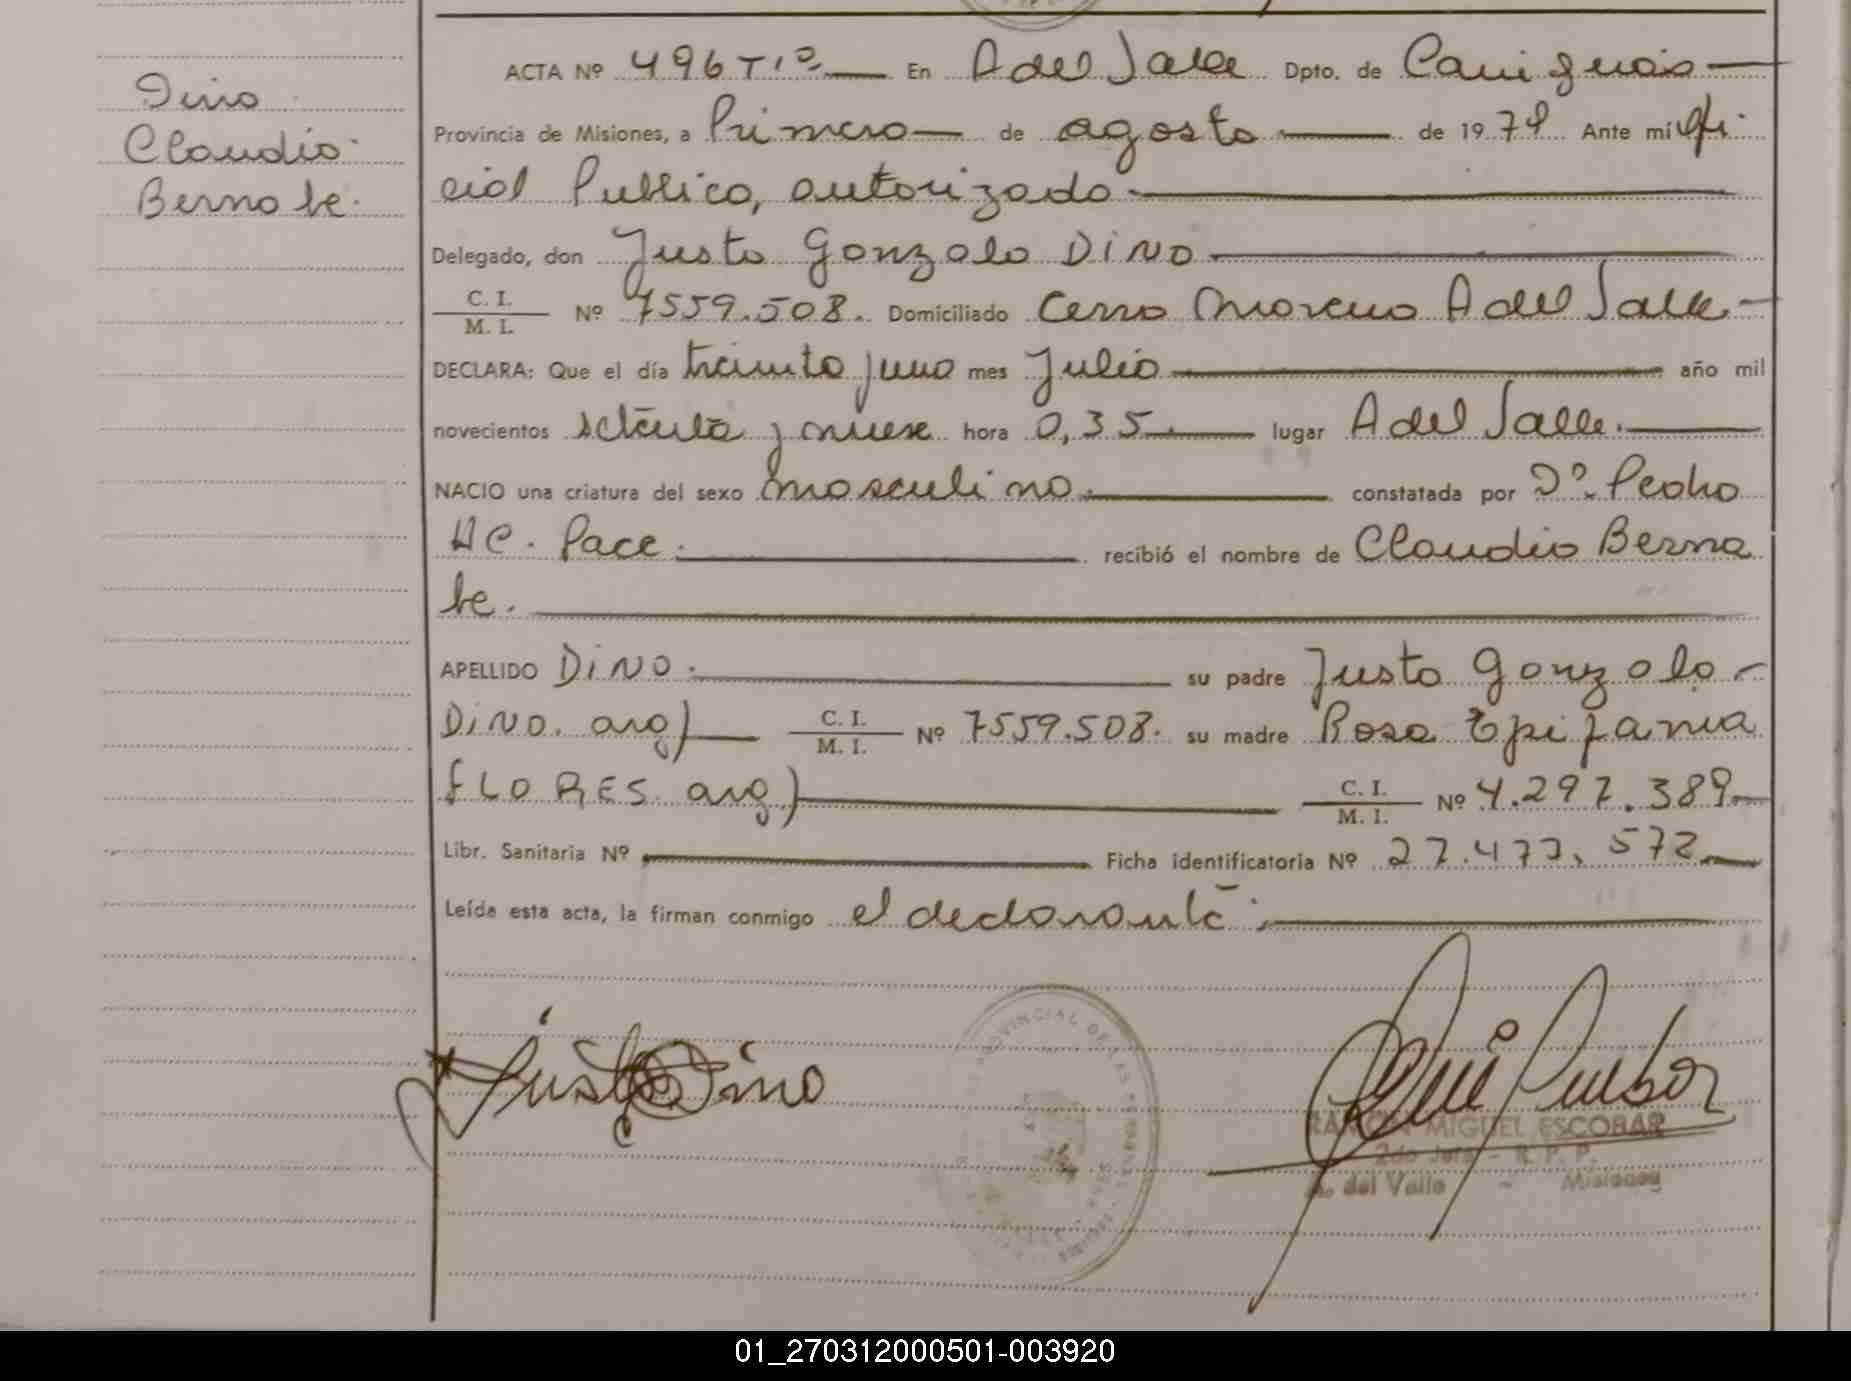 Dino
Claudio
Bernabe.
ACTA Nº 496 Tº 1º En A del Valle Dpto. de Cainguás
Provincia de Misiones, a Primero de agosto de 1979 Ante mi Ofi
cial Publico, autorizado
Delegado, don Justo Gonzalo DiNO
C. I.
M. I. Nº 7559.508. Domiciliado Cerro Moreno A del Valle
DECLARA: Que el día treinta y uno mes Julio año mil
novecientos setenta y nueve hora 0,35 lugar A del Valle.
NACIO una criatura del sexo masculino. constatada por Dº. Pedro
Pace. recibió el nombre de Claudio Berna
be.
APELLIDO DiNO. su padre Justo Gonzalo
DiNO. arg) C. I.
M. I. Nº 7559.508. su madre Rosa Epifania
FLORES arg) C. I.
M. I. Nº 4.297.389
Libr. Sanitaria Nº Ficha identificatoria Nº 27.477.572
Leída esta acta, la firman conmigo el declarante
Justo Dino
RAMON MIGUEL ESCOBAR
2do Jefe - R. P. P.
A. del Valle - Misiones
01_270312000501-003920